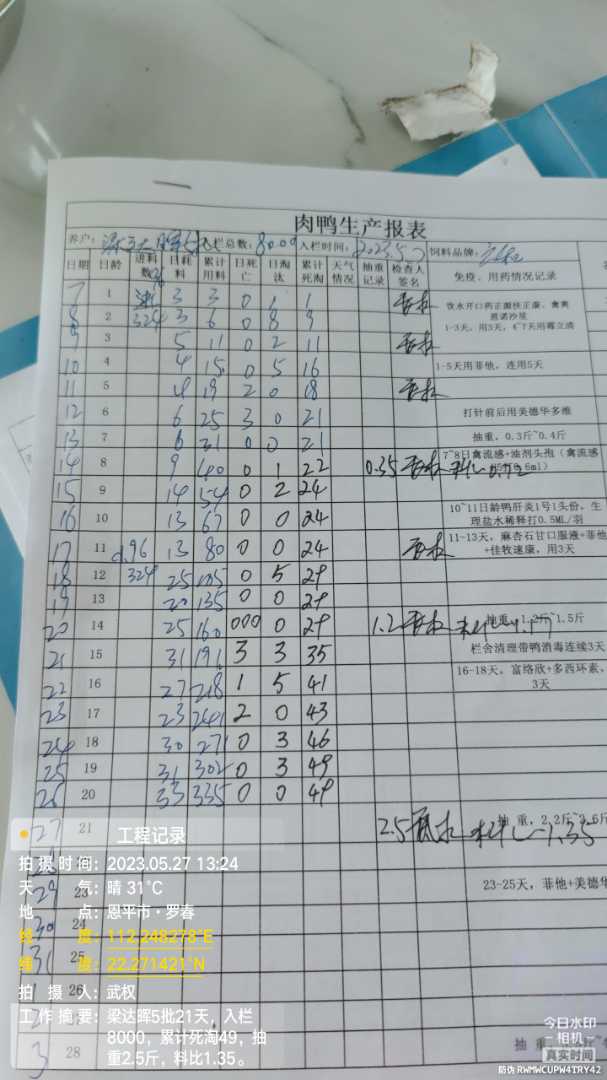 肉鸭生产报表
养户: 入栏总数: 8000 入栏时间: 2023.5.7 饲料品牌:
日期 日龄 进料数 日耗料 累计用料 日死亡 日淘汰 累计死淘 天气情况 抽重记录 检查人签名 免疫、用药情况记录
7 1 3 3 0 1 1 饮水开口药正菌扶正康、禽爽
恩诺沙星
8 2 324 3 6 0 8 9 1-3天，用3天，4~7天用霉立清
9 3 5 11 0 2 11
10 4 4 15 0 5 16 1-5天用菲他，连用5天
11 5 4 19 2 0 18
12 6 6 25 3 0 21 打针前后用美德华多维
13 7 6 31 0 0 21 抽重，0.3斤~0.4斤
14 8 9 40 0 1 22 0.35 7~8日禽流感+油剂头孢（禽流感
15 9 14 54 0 2 24
16 10 13 67 0 0 24 10~11日龄鸭肝炎1号1头份，生
理盐水稀释打0.5ML/羽
17 11 13 80 0 0 24 11-13天，麻杏石甘口服液+菲他
+佳牧速康，用3天
18 12 324 25 105 0 5 29
19 13 20 135 0 0 29
20 14 25 160 000 0 29 1.2 抽重，1.2斤~1.5斤
21 15 31 191 3 3 35 栏舍清理带鸭消毒连续3天
22 16 27 218 1 5 41 16-18天，富络欣+多西环素，
3天
23 17 23 241 2 0 43
24 18 30 271 0 3 46
25 19 31 302 0 3 49
26 20 33 335 0 0 49
27 21 2.5 料比1.35 抽重，2.2斤~2.6斤
29 23 23-25天，菲他+美德华
30 24
31 25
1 26
2
3 28 抽重
工程记录
拍摄时间: 2023.05.27 13:24
天气: 晴 31℃
地点: 恩平市·罗春
经度: 112.248278°E
纬度: 22.271421°N
拍摄人: 武权
工作摘要: 梁达晖5批21天，入栏
8000，累计死淘49，抽
重2.5斤，料比1.35。
今日水印
相机
真实时间
防伪 RWMWCUPW4TRY42